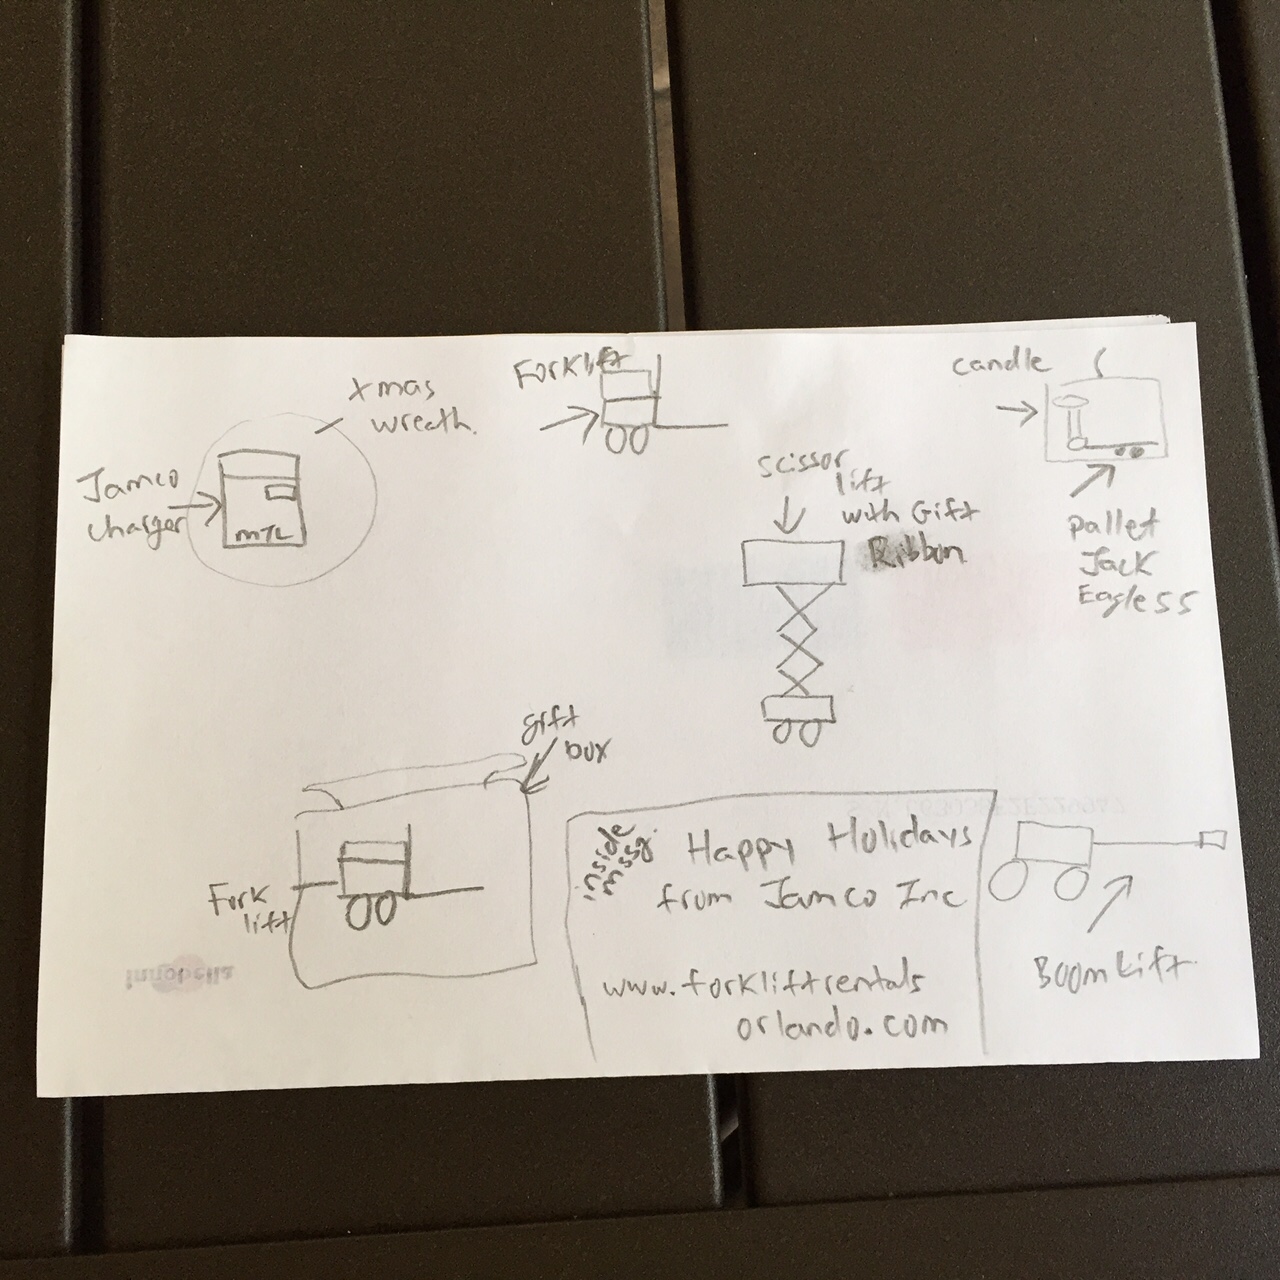 xmas
wreath.
Jamco
charger
mTL
Forklift
candle
scissor
lift
with Gift
Ribbon
pallet
Jack
Eagle 55
gift
box
Fork
lift
inside
mssg.
Happy Holidays
from Jamco Inc
www.forkliftrentals
orlando.com
Boom Lift
innobella